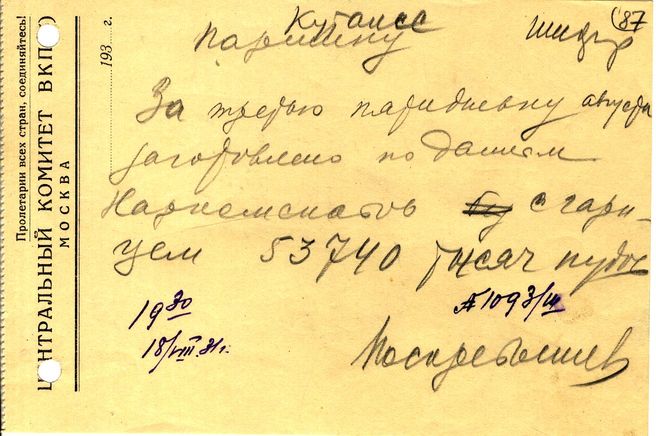 Пролетарии всех стран, соединяйтесь!
ЦЕНТРАЛЬНЫЙ КОМИТЕТ ВКП
МОСКВА
193 г.
87
Кутаисс
Шифр
Паришну
За третью пятидневку августа
заготовлено по данным
Наркомснабов с гарн-
цем 53740 тысяч пудов
19 30
18/VIII 31 г.
№ 1093/ш
Поскребышев